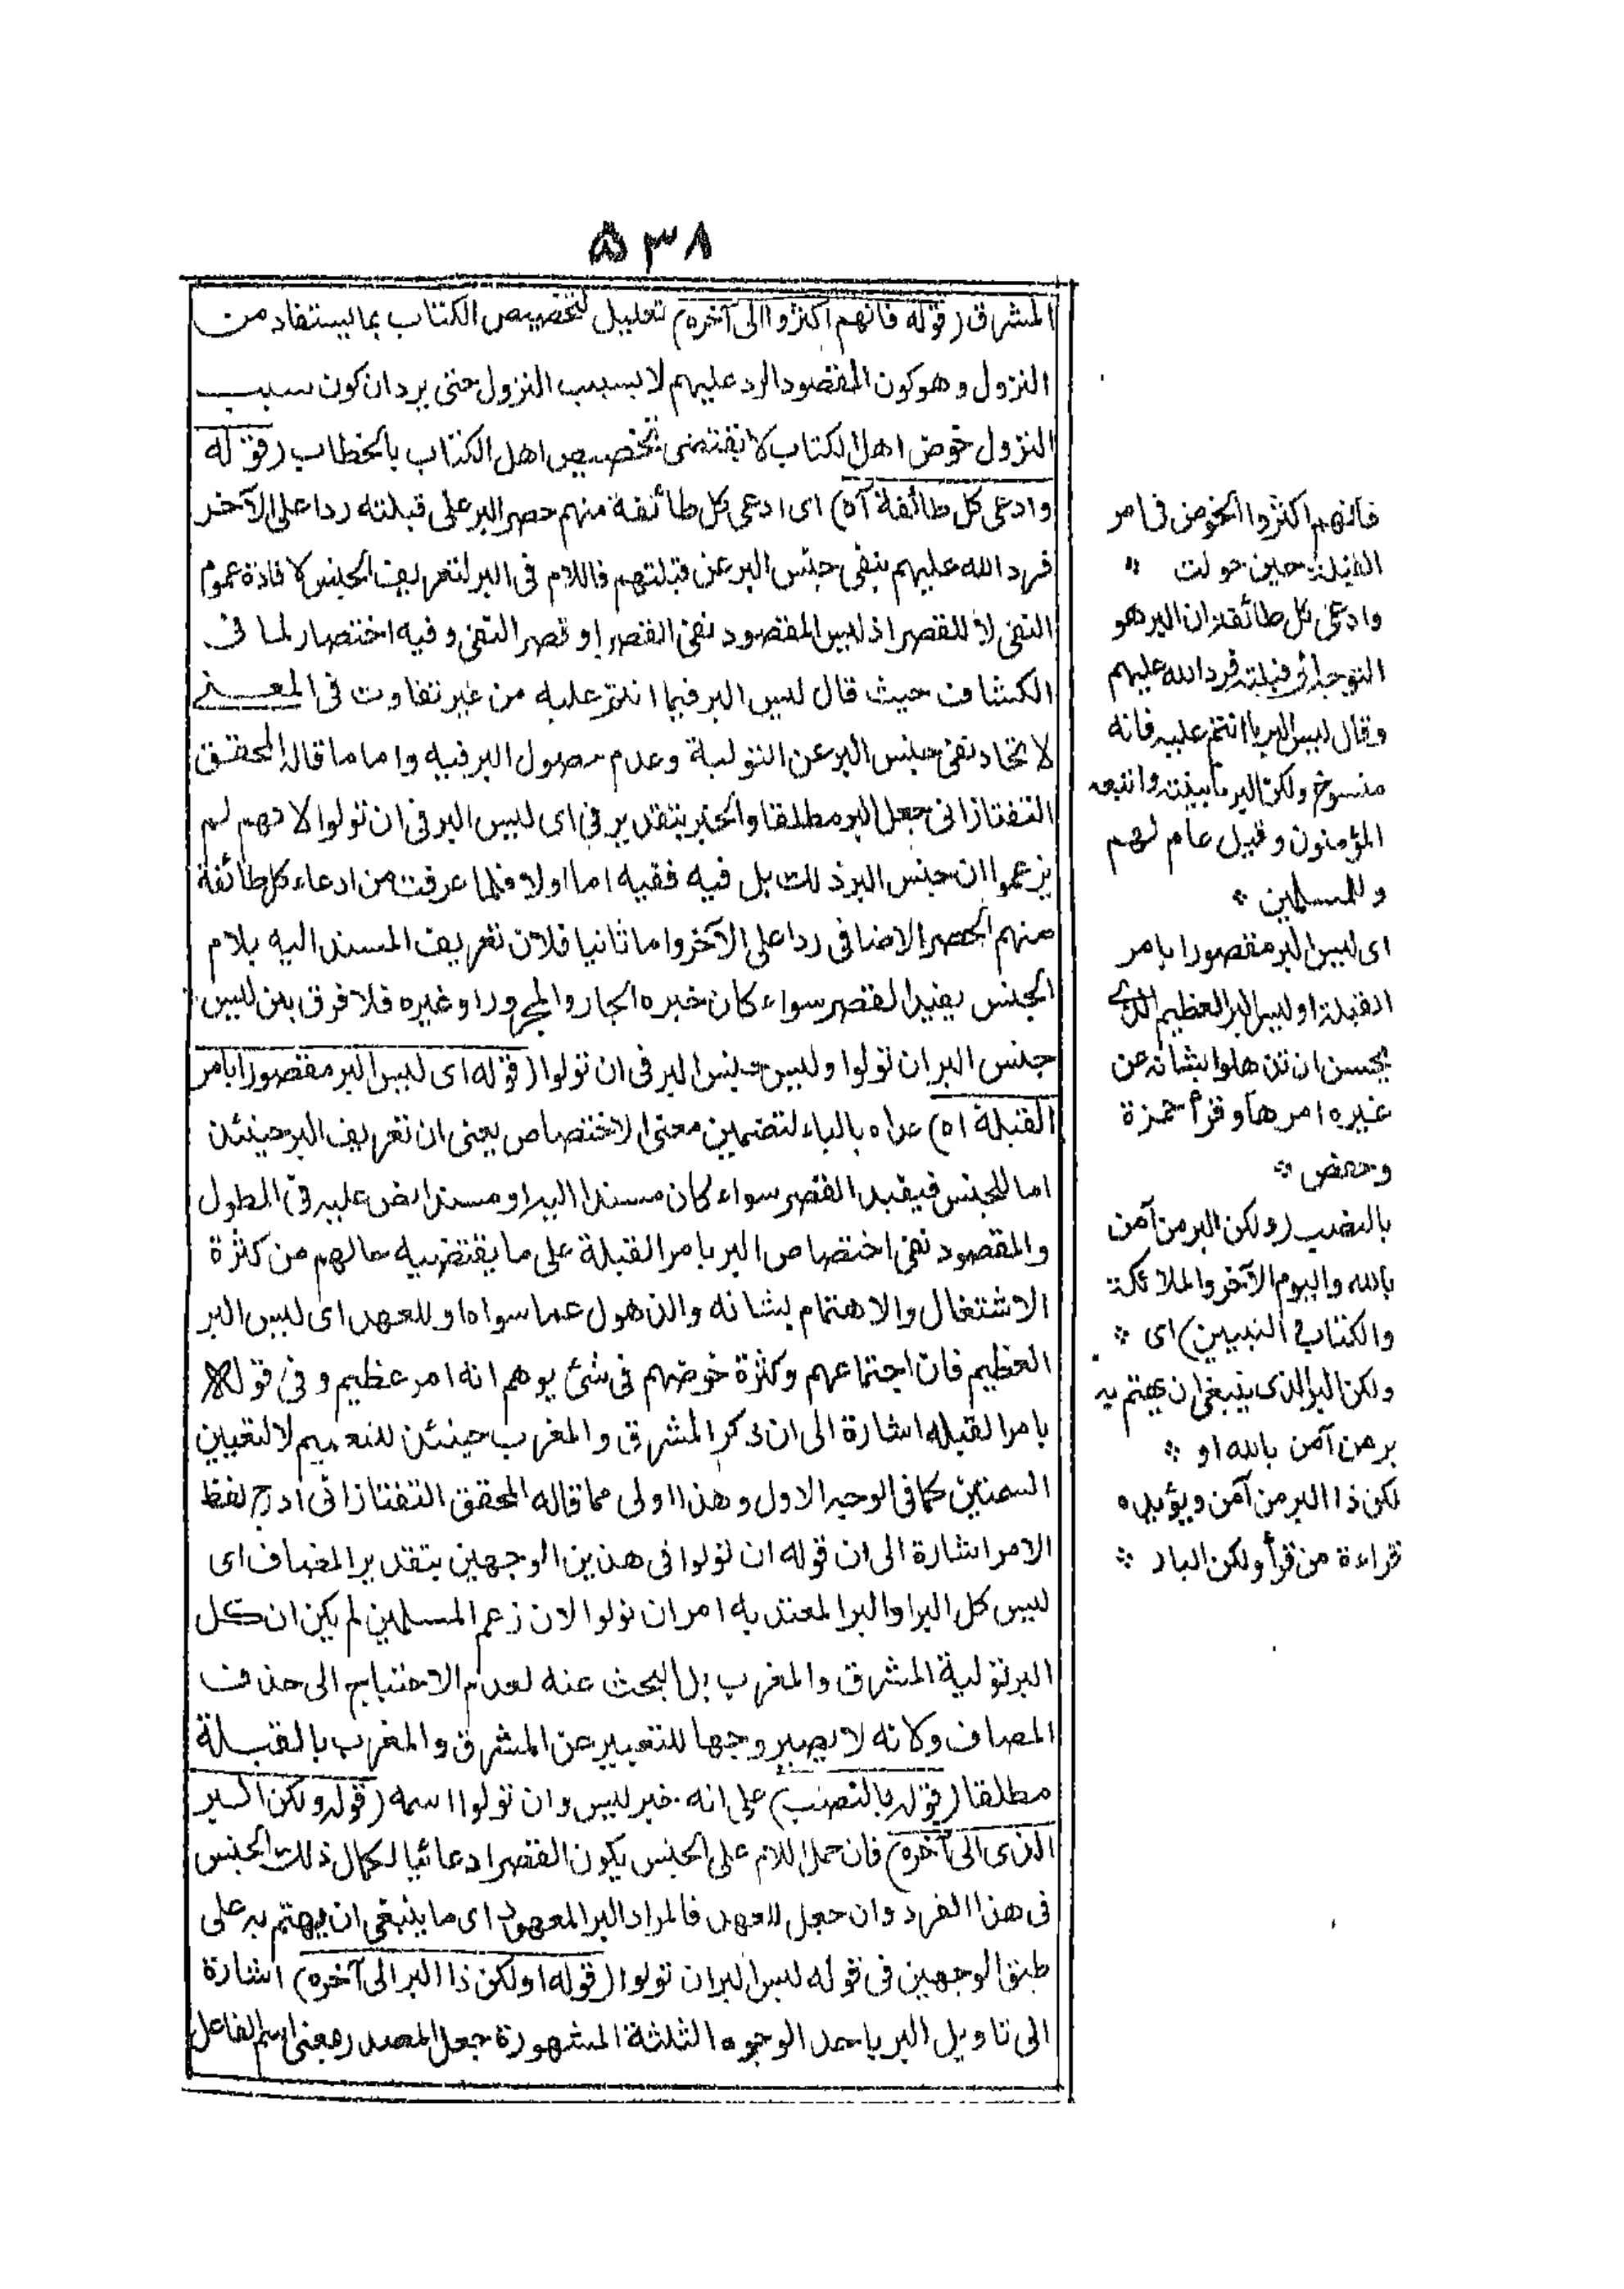 ٥٣٨
المشرق (قوله فانهم اكثروا الى آخره) تعليل لتخصيص الكتاب بما يستفاد من
النزول وهو كون المقصود الرد عليهم لا بسبب النزول حتى يرد ان كون سبب
النزول خوض اهل الكتاب لا يقتضى تخصيص اهل الكتاب بالخطاب (قوله
وادعى كل طائفة آه) اى ادعى كل طائفة منهم حصر البر على قبلته ردا على الآخر
فرد الله عليهم بنفى جنس البر عن قبلتهم فاللام فى البر لتعريف الجنس لافادة عموم
النفى لا للقصر اذ ليس المقصود نفى القصر او قصر النفى وفيه اختصار لما فى
الكشاف حيث قال ليس البر فيما انتم عليه من غير تفاوت فى المعنى
لاتحاد نفى جنس البر عن التولية وعدم حصول البر فيه واما ما قاله المحقق
التفتازانى جعل البر مطلقا والخبر بتقدير فى اى ليس البر فى ان تولوا لانهم لم
يزعموا ان جنس البر ذلك بل فيه ففيه اما اولا فلما عرفت من ادعاء كل طائفة
منهم الحصر الاضافى ردا على الآخر واما ثانيا فلان تعريف المسند اليه بلام
الجنس يفيد القصر سواء كان خبره الجار والمجرور او غيره فلا فرق بين ليس
جنس البر ان تولوا وليس جنس البر فى ان تولوا (قوله اى ليس البر مقصورا بامر
القبلة اه) عداه بالباء لتضمين معنى الاختصاص يعنى ان تعريف البر حينئذ
اما للجنس فيفيد القصر سواء كان مسندا اليه او مسندا نص عليه فى المطول
والمقصود نفى اختصاص البر بامر القبلة على ما يقتضيه حالهم من كثرة
الاشتغال والاهتمام بشانه والذهول عما سواه او للعهد اى ليس البر
العظيم فان اجتماعهم وكثرة خوضهم فى شئ يوهم انه امر عظيم وفى قوله
بامر القبله اشارة الى ان ذكر المشرق والمغرب حينئذ للتعميم لا لتعيين
السمتين كما فى الوجه الاول وهذا اولى مما قاله المحقق التفتازانى ادرج لفظ
الامر اشارة الى ان قوله ان تولوا فى هذين الوجهين بتقدير المضاف اى
ليس كل البر او البر المعتد به امر ان تولوا لان زعم المسلمين لم يكن ان كل
البر تولية المشرق والمغرب بل البحث عنه لعدم الاحتياج الى حذف
المضاف ولانه لا يصير وجها للتعبير عن المشرق والمغرب بالقبلة
مطلقا (قوله بالنصب) على انه خبر ليس وان تولوا اسمه (قوله ولكن البر
الذى الى آخره) فان حمل اللام على الجنس يكون القصر ادعائيا لكمال ذلك الجنس
فى هذا الفرد وان جعل للعهد فالمراد البر المعهود اى ما ينبغى ان يهتم به على
طبق الوجهين فى قوله ليس البر ان تولوا (قوله او لكن ذا البر الى آخره) اشارة
الى تاويل البر باحد الوجوه الثلثة المشهورة جعل المصدر بمعنى اسم الفاعل
فانهم اكثروا الخوض فى امر
القبلة حين حولت
وادعى كل طائفة ان البر هو
التوجه الى قبلته فرد الله عليهم
وقال ليس البر ما انتم عليه فانه
منسوخ ولكن البر ما بينته واتبعه
المؤمنون وقيل عام لهم
وللمسلمين
اى ليس البر مقصورا بامر
القبلة او ليس البر العظيم الذى
يحسن ان تذهلوا بشانه عن
غيره امرها وقرأ حمزة
وحفص
بالنصب (ولكن البر من آمن
بالله واليوم الآخر والملائكة
والكتاب والنبيين) اى
ولكن البر الذى ينبغى ان يهتم به
بر من آمن بالله او
لكن ذا البر من آمن ويؤيده
قراءة من قرأ ولكن البار